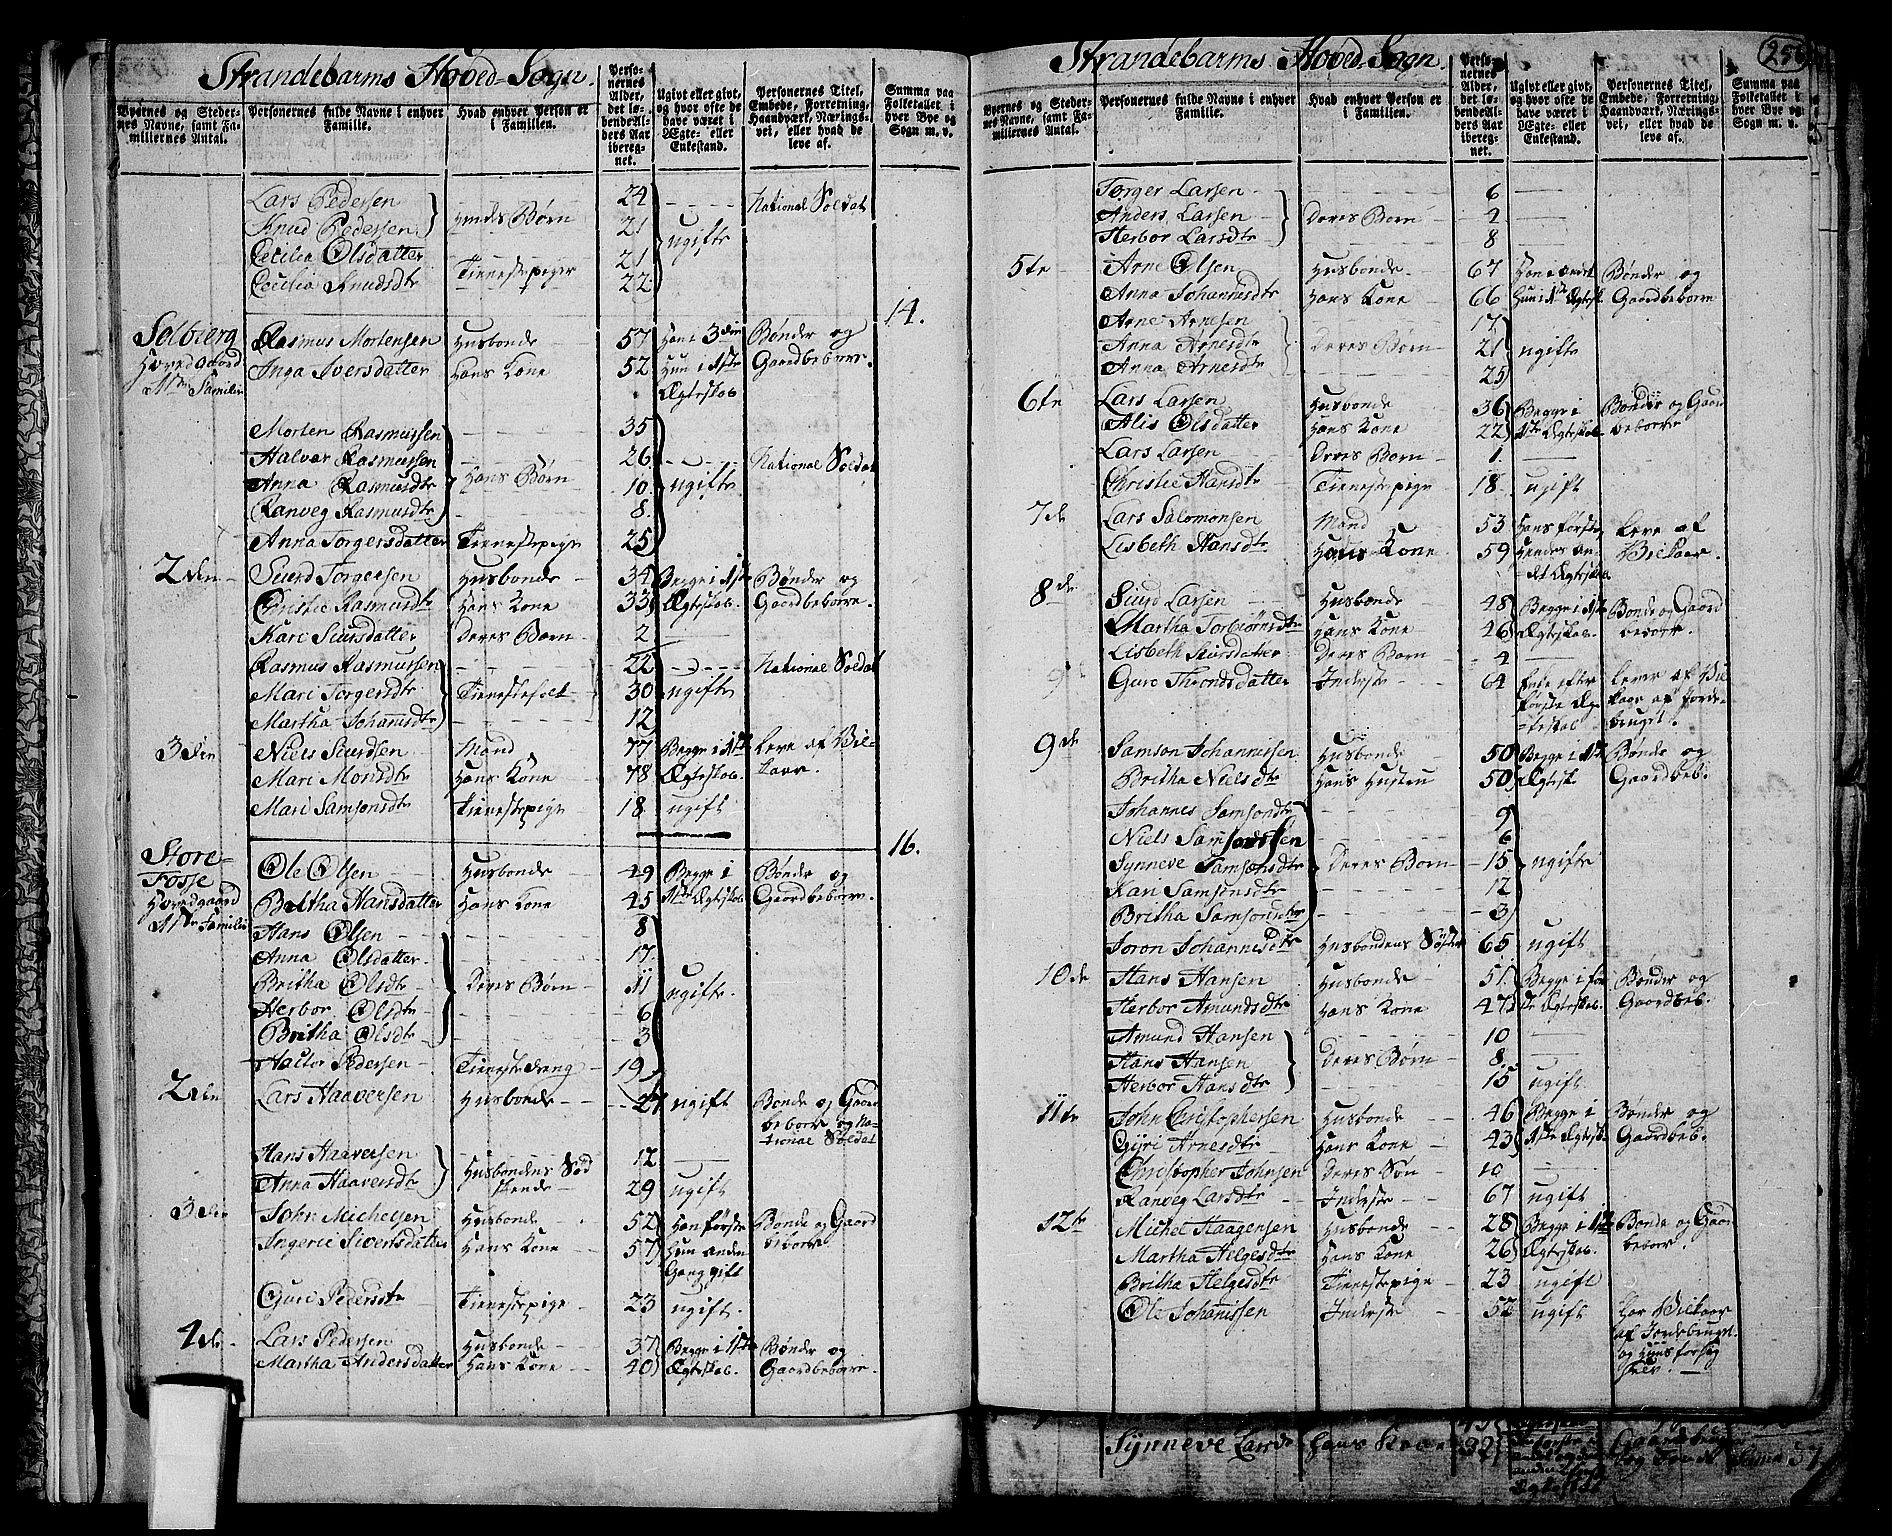 Strandebarms Hoved-Sogn.
Byernes og Stedernes Navne, samt Familiernes Antal. Personernes fulde Navne i enhver Familie. Hvad enhver Person er i Familien. Personernes Alder, det løbende Alders Aar iberegnet. Ugivt eller givt, og hvor ofte de have været i Ægte- eller Enkestand. Personernes Titel, Embede, Forretning, Haandværk, Næringsvei, eller hvad de leve af. Summa paa Folketallet i hver Bye og Sogn m. v.
Lars Pedersen 24 National Soldat
Knud Pedersen Hendes Børn 21 ugifte
Cecilia Olsdatter 21
Cecilia Knudsdtr Tienestepiger 22
14.
Solbierg Rasmus Mortensen Husbonde 57 Han i 3die Bønder og
Hovedgaard Inga Iversdatter Hans Kone 52 Hun i 1ste Gaardbeboere
1ste Familie Ægteskab
Morten Rasmussen 35
Halvor Rasmussen 26 National Soldat
Anna Rasmusdtr Hans Børn 10 ugifte
Ranveg Rasmusdtr 8
Anna Torgersdatter Tienestepige 25
2den Siurd Torgersen Husbonde 34 Begge i 1ste Bønder og
Christie Rasmusdtr Hans Kone 33 Ægteskab. Gaardbeboere.
Kari Siursdatter Deres Barn 2
Rasmus Rasmussen 22 National Soldat
Mari Torgersdtr Tienestefolk 30 ugifte
Martha Johannisdtr 12
3die Niels Siurdsen Mand 77 Begge i 1ste Leve af Vil-
Mari Monsdtr Hans Kone 78 Ægteskab. kaar.
Mari Samsonsdtr Tienestepige 18 ugift
16.
Store- Ole Olsen Husbonde 49 Begge i Bønder og
Fosse Britha Hansdatter Hans Kone 45 1ste Ægteskab Gaardbeboere.
Hovedgaard Hans Olsen 8
1ste Familie Anna Olsdatter 17
Britha Olsdtr Deres Børn 11 ugifte.
Herbor Olsdtr 6
Britha Olsdtr 3
Haldor Pedersen Tienestedreng 19
2den Lars Haaversen Husbonde 27 ugift Bonde og Gaard
beboere og Na-
tional Soldat
Hans Haaversen Husbondens Sød 12
Anna Haaversdtr skende 29 ugift
3die John Michelsen Husbonde 52 Han første Bønde og Gaard
Ingerie Sivertsdatter Hans Kone 57 Hun anden beboere
Gang gift
Guri Pedersdtr Tienestepige 23 ugift.
4de Lars Pedersen Husbonde 37 Begge i 1ste Bønder og
Martha Andersdatter Hans Kone 40 Ægteskab. Gaardbeboere.
256
Strandebarms Hoved-Sogn.
Byernes og Stedernes Navne, samt Familiernes Antal. Personernes fulde Navne i enhver Familie. Hvad enhver Person er i Familien. Personernes Alder, det løbende Alders Aar iberegnet. Ugivt eller givt, og hvor ofte de have været i Ægte- eller Enkestand. Personernes Titel, Embede, Forretning, Haandværk, Næringsvei, eller hvad de leve af. Summa paa Folketallet i hver Bye og Sogn m. v.
Torger Larsen 6
Anders Larsen Deres Børn 2
Herbor Larsdtr 8
5te Arne Olsen Husbonde 67 Han i andet Bønder og
Anna Johannesdtr Hans Kone 66 Hun i 1ste Ægtesk. Gaardbeboere
Arne Arnesen 17
Anna Arnesdtr Deres Børn 21 ugifte
Anna Arnesdtr 25
6te Lars Larsen Husbonde 36 Begge i Bønder og Gaard
Alis Olsdatter Hans Kone 22 1ste Ægteskab beboere
Lars Larsen Deres Barn 1
Christie Hansdtr Tienestepige 18 ugift
7de Lars Salomonsen Mand 53 Hans første Leve af
Lisbeth Hansdtr Hans Kone 59 Hendes an- Vilkaar.
det Ægteskab
8de Siurd Larsen Husbonde 48 Begge i 1ste Bonde og Gaard
Martha Torbiørnsdtr Hans Kone 46 Ægteskab. beboere.
Lisbeth Siursdatter Deres Barn 4
Guro Throndsdatter Inderste 64 Enke efter Lever af Vil-
første Æg- kaar af Jorde-
teskab bruget.
9de Samson Johannissen Husbonde 50 Begge i 1ste Bønde og
Britha Nielsdtr Hans Hustru 50 Ægtesk. Gaardbeb.
Johannes Samsondtr 9
Niels Samsonssen 6
Synneve Samsonsdtr Deres Børn 15 ugifte
Kari Samsonsdtr 12
Britha Samsonsdtr 3
Joron Johannesdtr Husbondens Søster 65 ugift
10de Hans Hansen Husbonde 51 Begge i før- Bønder og
Herbor Amundsdtr Hans Kone 47 ste Ægteskab. Gaardbeb.
Amund Hansen 10
Hans Hansen Deres Børn 8
Herbor Hansdtr 15 ugift
11te John Christophersen Husbonde 46 Begge i Bønder og
Gyri Arnesdtr Hans Kone 43 1ste Ægtesk. Gaardbeb.
Christopher Johnsen Deres Søn 10
Ranveg Larsdtr Inderste 67 ugift
12te Michel Haagensen Husbonde 28 Begge i 1ste Bonde og Gaard
Martha Helgesdtr Hans Kone 26 Ægteskab. beboer.
Britha Helgesdtr Tienestepige 23 ugift
Ole Johanissen Inderste 52 ugift Har Vilkaar
af Jordebruget
Synneve Larsd Hans Kone